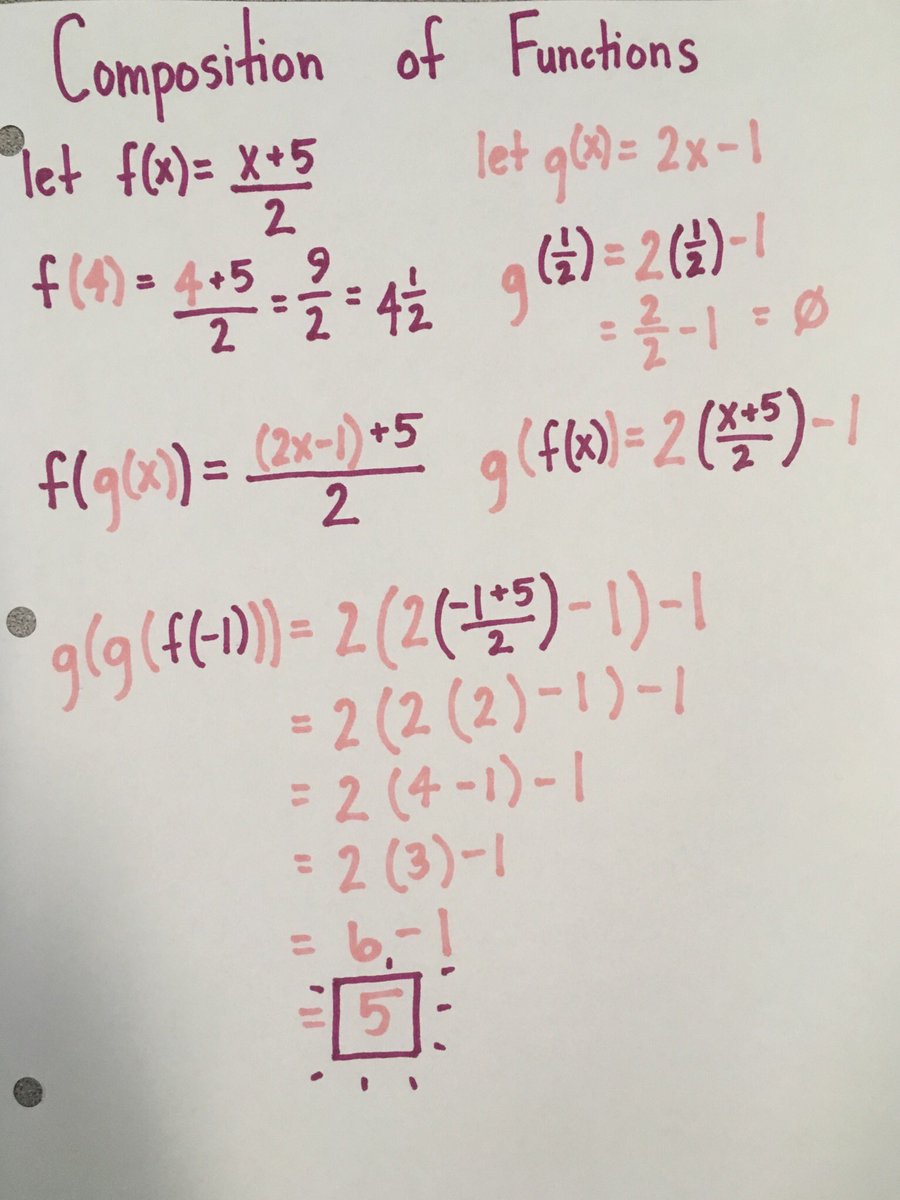 Composition of Functions
let f(x) = (x+5)/2
let g(x) = 2x-1
f(4) = (4+5)/2 = 9/2 = 4 1/2
g(1/2) = 2(1/2)-1
= 2/2 - 1 = Ø
f(g(x)) = ((2x-1)+5)/2
g(f(x)) = 2((x+5)/2)-1
g(g(f(-1))) = 2(2((-1+5)/2)-1)-1
= 2(2(2)-1)-1
= 2(4-1)-1
= 2(3)-1
= 6-1
= 5